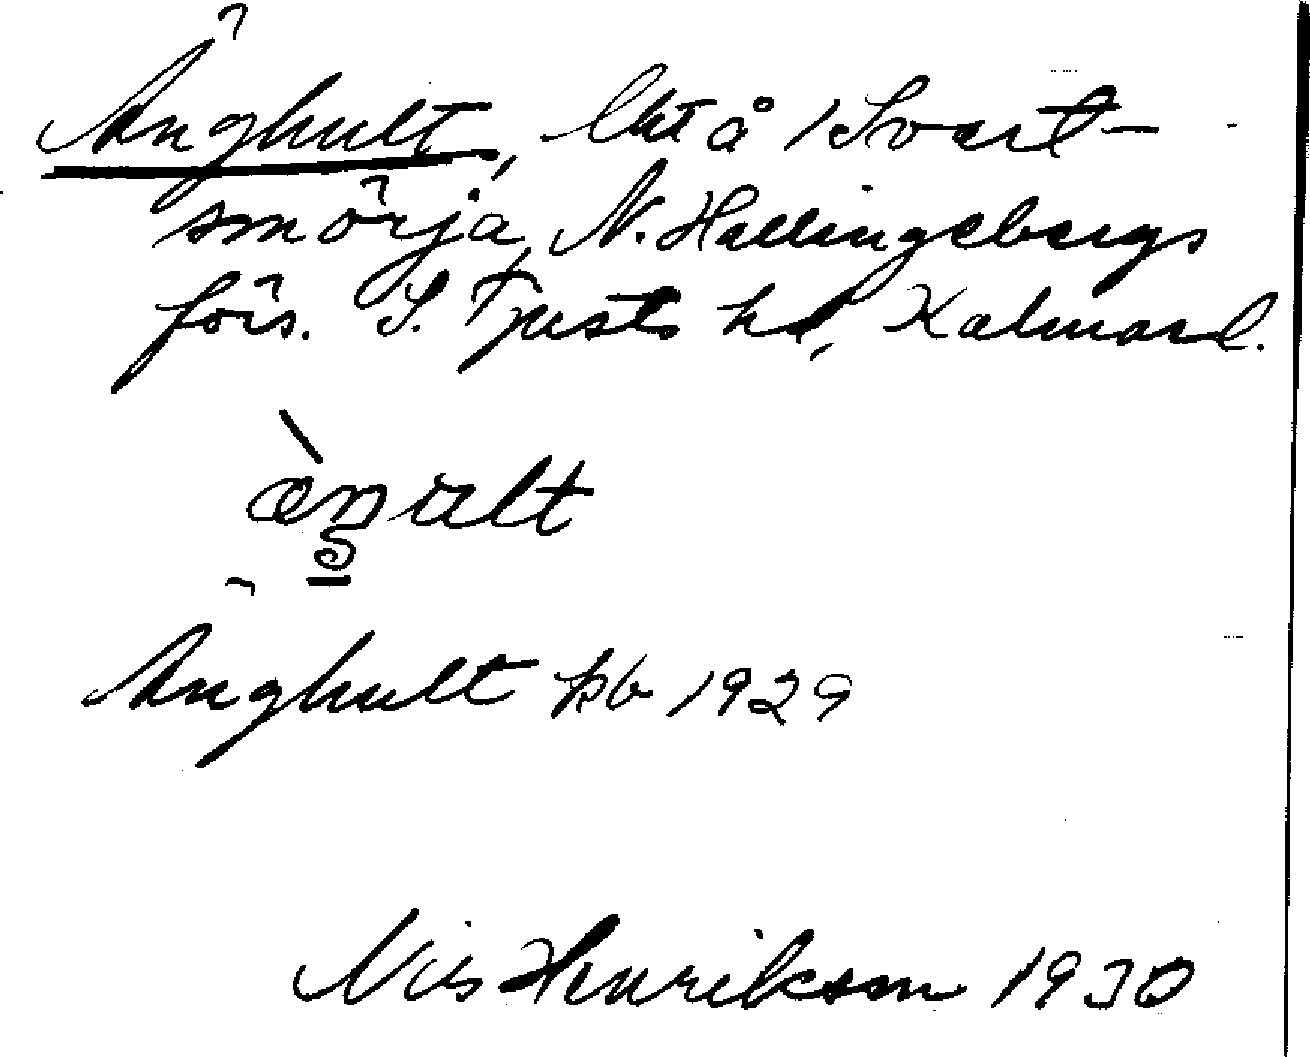 Änghult, lht å 1 Svart-
smörja, N. Hallingebergs
förs. S. Tjusts hd, Kalmar l.
æŋult
Änghult kb 1929
Nils Henrikson 1930